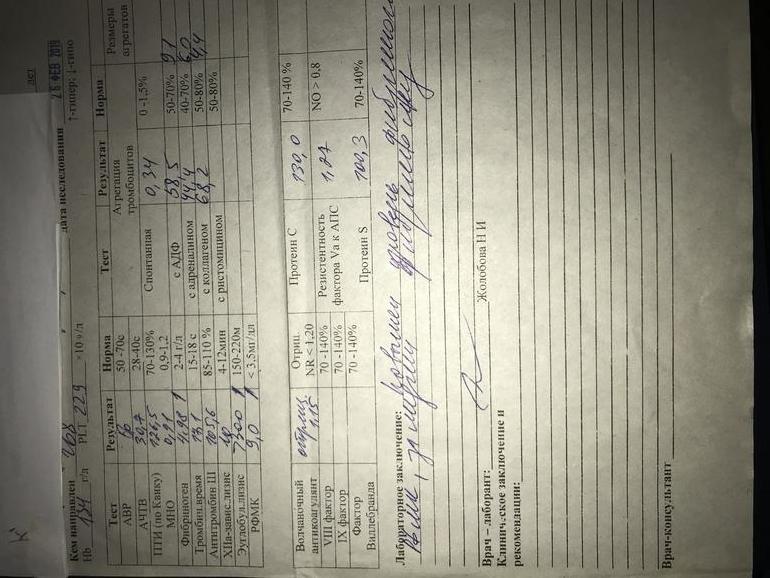 лет
Кем направлен
дата исследования 26 ФЕВ 2019
Hb 134 г/л PLT 229 ×10⁹/л ↑-гипер; ↓-гипо
Тест Результат Норма Тест Результат Норма Размеры агрегатов
АВР 50 -70с Агрегация тромбоцитов
АЧТВ 28-40с Спонтанная 0,34 0 -1,5%
ПТИ (по Квику) 70-130%
МНО 0,91 0,9-1,2 с АДФ 58,5 50-70% 9,1
Фибриноген 4,98 ↑ 2-4 г/л с адреналином 44,4 40-70%
Тромбин.время 15-18 с с коллагеном 50-80% 4,4
Антитромбин III 105,6 85-110 % с ристомицином 68,2 50-80%
XIIа-завис.лизис 4-12мин
Эуглобул.лизис >300 ↑ 150-220м
РФМК 9,0 ↑ < 3,5мг/дл
Волчаночный антикоагулянт отриц. 1.15 Отриц. NR < 1,20 Протеин С 130,0 70-140 %
VIII фактор 70 -140% Резистентность фактора Va к АПС 1,24 NO > 0,8
IX фактор 70 -140%
Фактор Виллебранда 70 -140% Протеин S 100,3 70-140%
Лабораторное заключение: уровень
Врач – лаборант: Жолобова Н И
Клиническое заключение и
рекомендации:
Врач-консультант